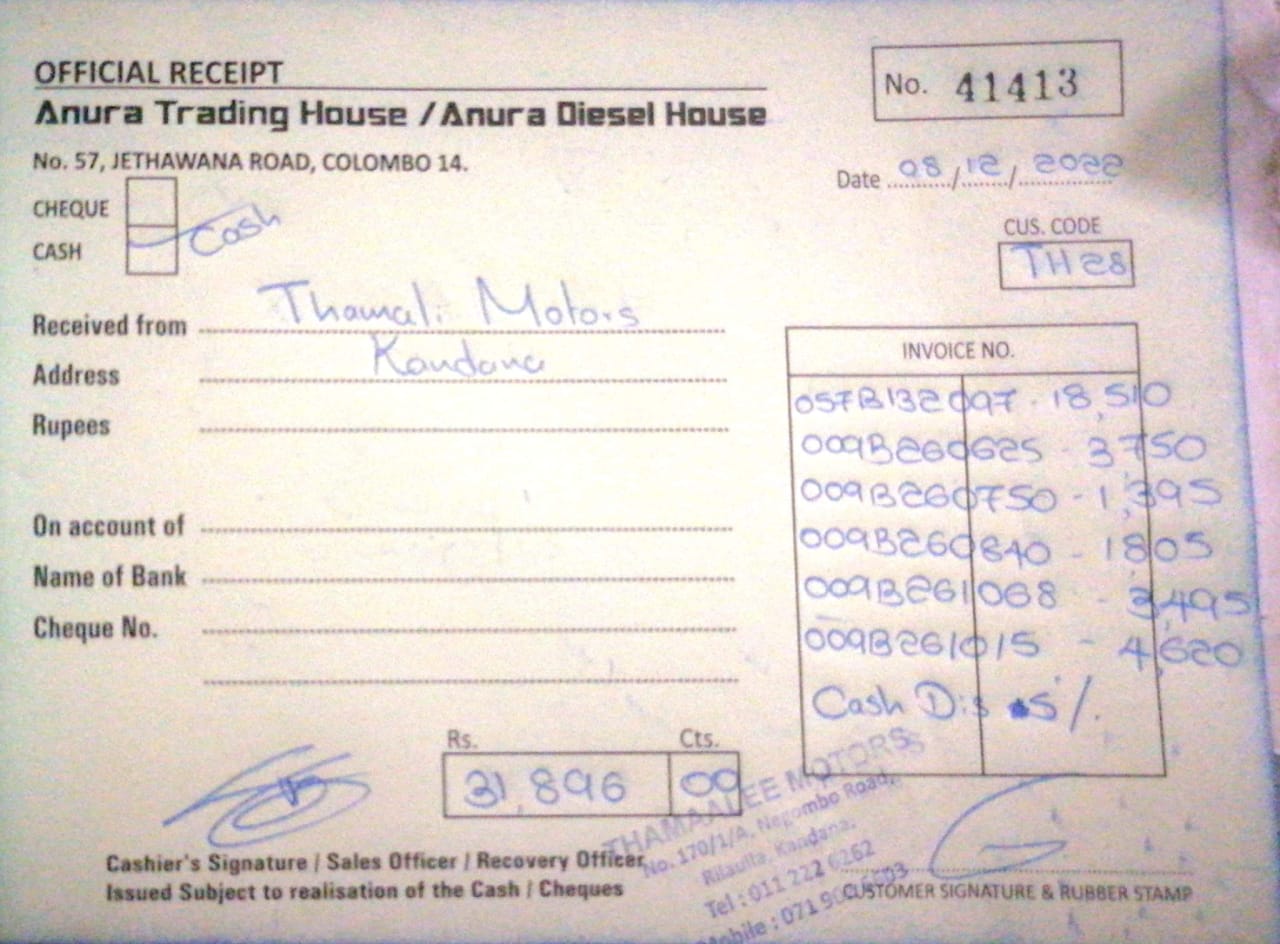 OFFICIAL RECEIPT
Anura Trading House / Anura Diesel House
No. 57, JETHAWANA ROAD, COLOMBO 14.
No. 41413
Date 08/12/2022
CHEQUE
CASH
Cash
CUS. CODE
TH28
Received from Thamali Motors
Address Kandana
Rupees
On account of
Name of Bank
Cheque No.
INVOICE NO.
057B132097 - 18,510
009B260625 - 3750
009B260750 - 1,395
009B260840 - 1805
009B261068 - 3,495
009B261015 - 4,620
Cash Dis 5%
Rs. Cts.
31,896 00
Cashier's Signature / Sales Officer / Recovery Officer
Issued Subject to realisation of the Cash / Cheques
THAMAALEE MOTORS
No. 170/1/A, Negombo Road,
Rilaulla, Kandana.
Tel : 011 222 6262
Mobile : 071
CUSTOMER SIGNATURE & RUBBER STAMP